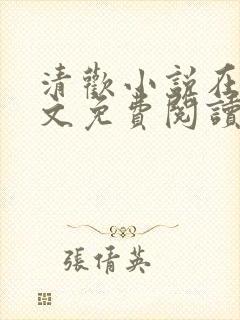 清歡小説在
文免費閱讀
張倩英